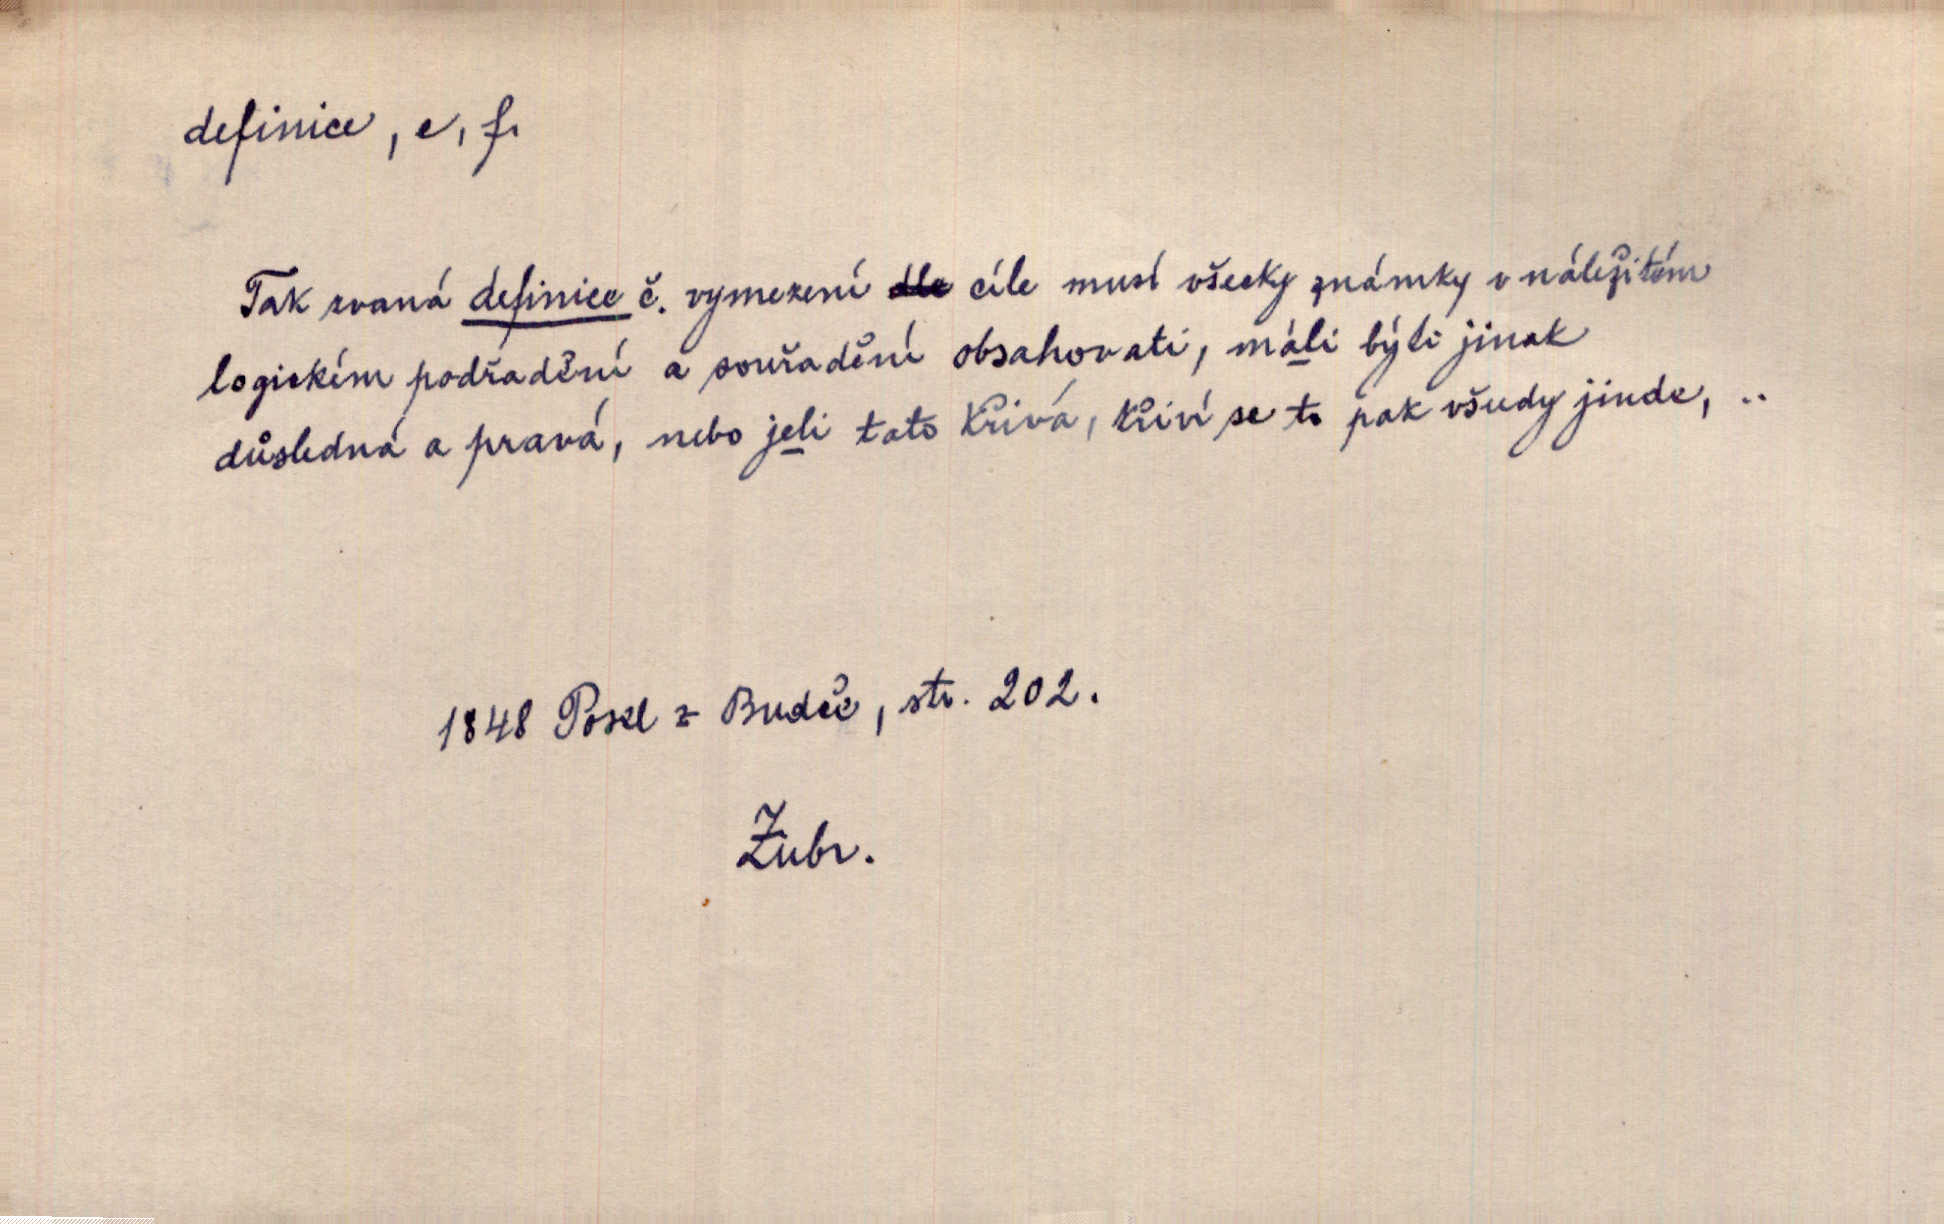 definice, e, f.
Tak zvaná definice č. vymezení cíle musí všecky známky v náležitém
logickém podřadění a souřadění obsahovati, máli býti jinak
důsledná a pravá, nebo jeli tato křivá, křiví se to pak všudy jinde, ..
1848 Posel z Budče, str. 202.
Zubr.